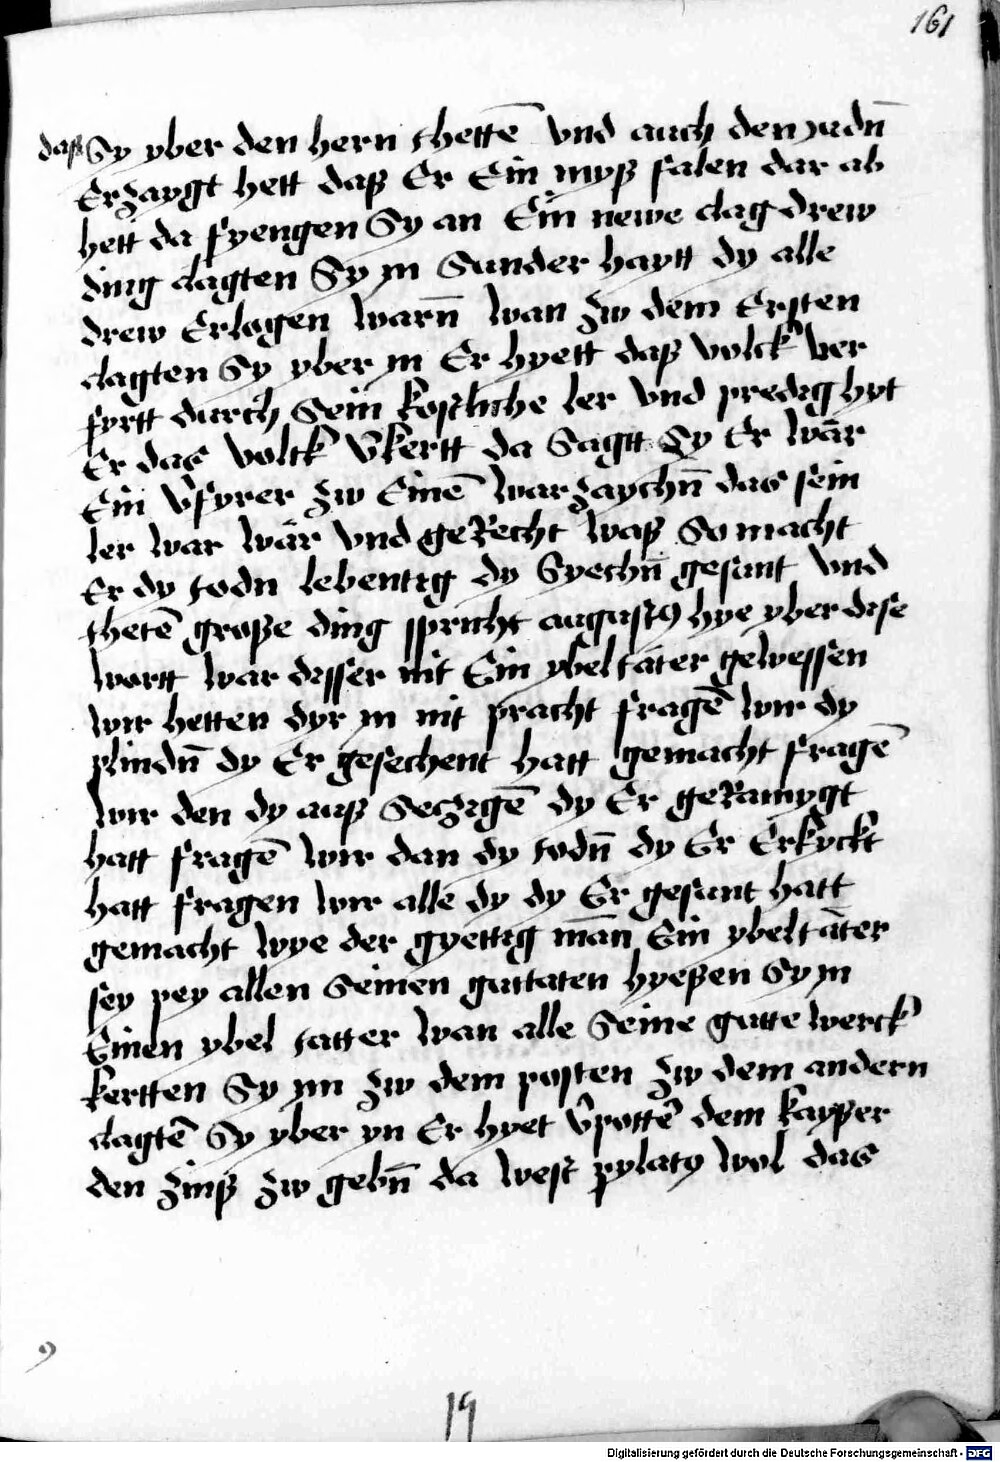 161
daß Sy yber den hern thettē vnd auch den Judn̄
Erzaygt hett daß Er Ein myß falen dar ab
hett da fyengen Sy an Ein newe clag drew
ding clagten Sy yn Sunder haytt dy alle
drew Erlogen warn̄ wan zw dem Ersten
clagten Sy yber yn Er hyett daß volck ver
fyrtt durch Sein kostliche ler vnd predig hyt
Er das volck v̄kertt da Sagtt Sy Er wär
Ein v̄fyrer zw Einē warzaychn̄ das sein
ler war wär vnd geRecht waß So macht
Er dy todn lebentig dy Syechn̄ gesunt vnd
thetē große ding spricht augustꝰ hye yber dise
wortt wär disser nit Ein ybeltäter gewessen
wir hetten dyr yn nit pracht fragē wir dy
plindn̄ dy Er gesechent hatt gemacht fragē
wir den dy auß Seczigē dy Er geRainygt
hatt fragē wir dan dy todn̄ dy Er Erkyckt
hatt fragen wir alle dy dy Er gesunt hatt
gemacht wye der gyettig man Ein ybeltäter
sey pey allen Seinen guttaten hyeßen Sy yn
Einen ybel tatter wan alle Seine gutte werck
kertten Sy ym zw dem posten zw dem andern
clagtē Sy yber yn Er hyet v̄pottē dem kayßer
den zinß zw gebn̄ da west pylatꝰ wol das
19
Digitalisierung gefördert durch die Deutsche Forschungsgemeinschaft - DFG